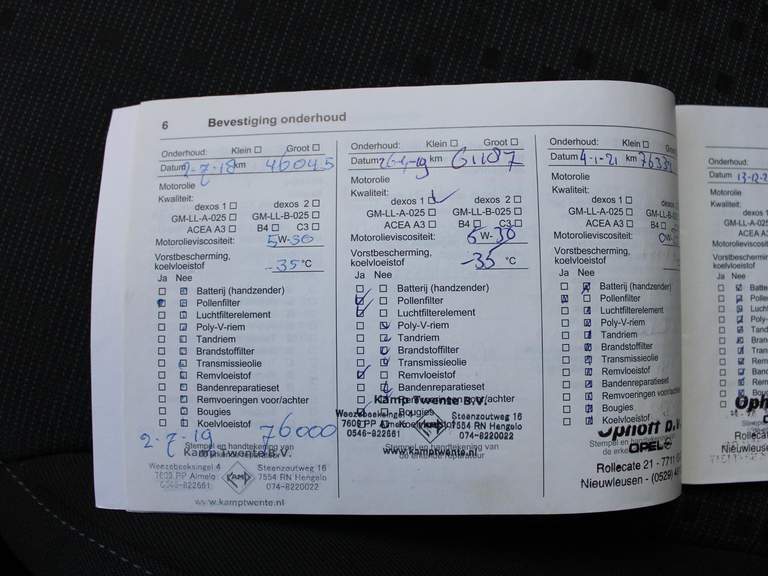 6 Bevestiging onderhoud
Onderhoud: Klein Groot
Datum 2-7-18 km 46045
Motorolie
Kwaliteit:
dexos 1 dexos 2
GM-LL-A-025 GM-LL-B-025
ACEA A3 B4 C3
Motorolieviscositeit: 5W-30
Vorstbescherming,
koelvloeistof -35 °C
Ja Nee
Batterij (handzender)
Pollenfilter
Luchtfilterelement
Poly-V-riem
Tandriem
Brandstoffilter
Transmissieolie
Remvloeistof
Bandenreparatieset
Remvoeringen voor/achter
Bougies
Koelvloeistof
2-7-19 76000
Stempel en handtekening van
Kamp Twente B.V.
Weezebeeksingel 4 Steenzoutweg 16
7609 PP Almelo KAMP 7554 RN Hengelo
0546-822661 074-8220022
www.kamptwente.nl
Onderhoud: Klein Groot
Datum km 61187
Motorolie
Kwaliteit:
dexos 1 dexos 2
GM-LL-A-025 GM-LL-B-025
ACEA A3 B4 C3
Motorolieviscositeit: 5W-30
Vorstbescherming,
koelvloeistof -35 °C
Ja Nee
Batterij (handzender)
Pollenfilter
Luchtfilterelement
Poly-V-riem
Tandriem
Brandstoffilter
Transmissieolie
Remvloeistof
Bandenreparatieset
Remvoeringen voor/achter
Kamp Twente B.V.
Bougies
Weezebeeksingel Steenzoutweg 16
7609 PP Koelvloeistof 7554 RN Hengelo
0546-822661 074-8220022
Stempel en handtekening van
de erkende reparateur
www.kamptwente.nl
Onderhoud: Klein Groot
Datum 4-1-21 km
Motorolie
Kwaliteit:
dexos 1 dexos 2
GM-LL-A-025 GM-LL-B-025
ACEA A3 B4
Motorolieviscositeit: 0W-
Vorstbescherming,
koelvloeistof
Ja Nee
Batterij (handzender)
Pollenfilter
Luchtfilterelement
Poly-V-riem
Tandriem
Brandstoffilter
Transmissieolie
Remvloeistof
Bandenreparatieset
Remvoeringen voor/achter
Bougies
Koelvloeistof
Stempel en handtekening
de erke OPEL
Rollecate 21 - 7711
Nieuwleusen - (0529)
Onderhoud:
Datum 13-12-2
Motorolie
Kwaliteit:
dexos
GM-LL-A-02
ACEA A3
Motorolieviscosi
Vorstbeschermin
koelvloeistof
Ja Nee
Batte
Polle
Luch
Poly
Tand
Bran
Trans
Rem
Band
Rem
Oph
Rollec
Nieuwleus